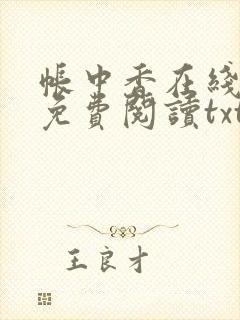 帳中香在綫
免費閱讀txt
王良才